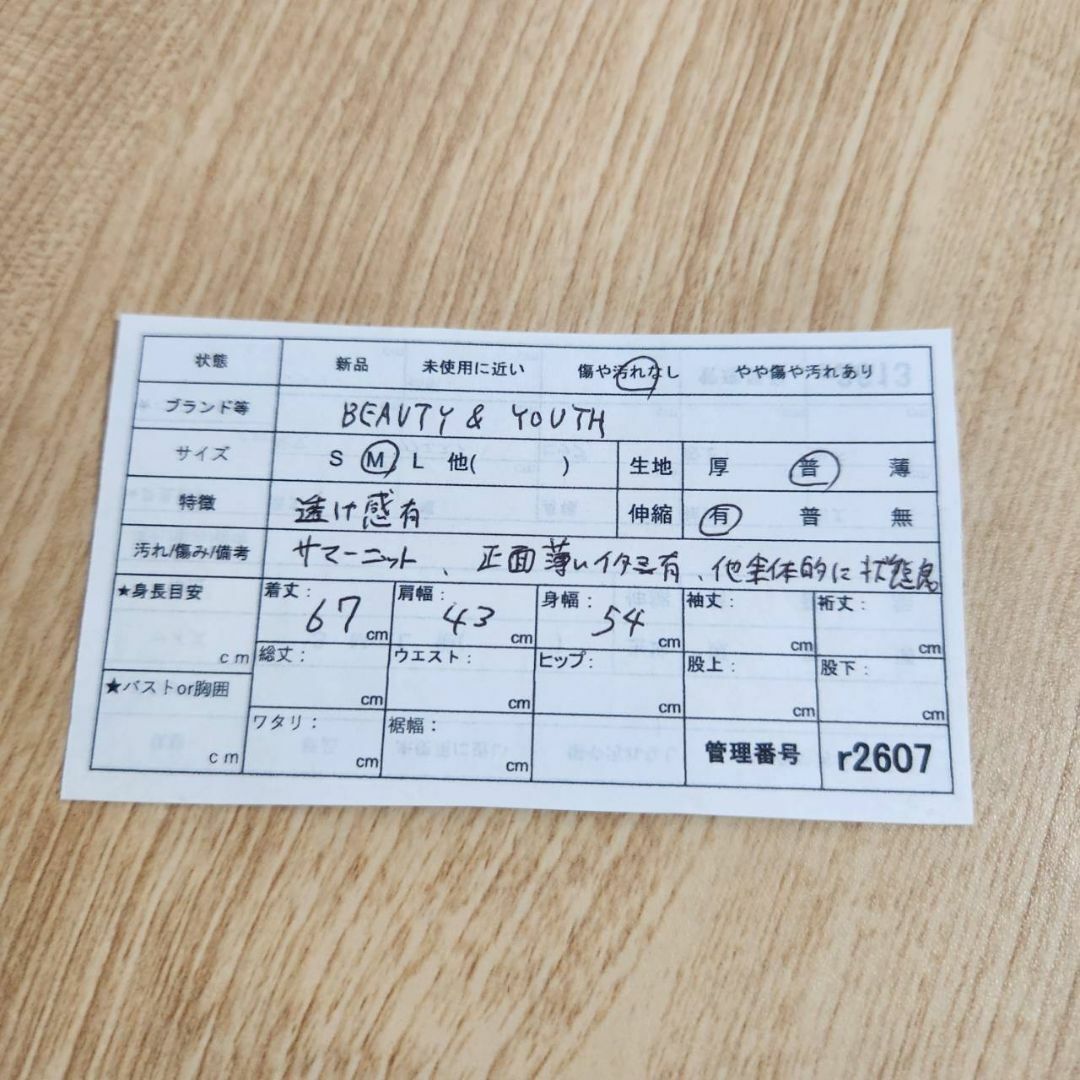 状態 新品 未使用に近い 傷や汚れなし やや傷や汚れあり
ブランド等 BEAUTY & YOUTH
サイズ S M L 他( ) 生地 厚 普 薄
特徴 透け感有 伸縮 有 普 無
汚れ/傷み/備考 サマーニット、正面薄いイタミ有、他全体的に状態良
★身長目安 cm 着丈: 67 cm 肩幅: 43 cm 身幅: 54 cm 袖丈: cm 裄丈: cm
総丈: cm ウエスト: cm ヒップ: cm 股上: cm 股下: cm
★バストor胸囲 cm ワタリ: cm 裾幅: cm 管理番号 r2607